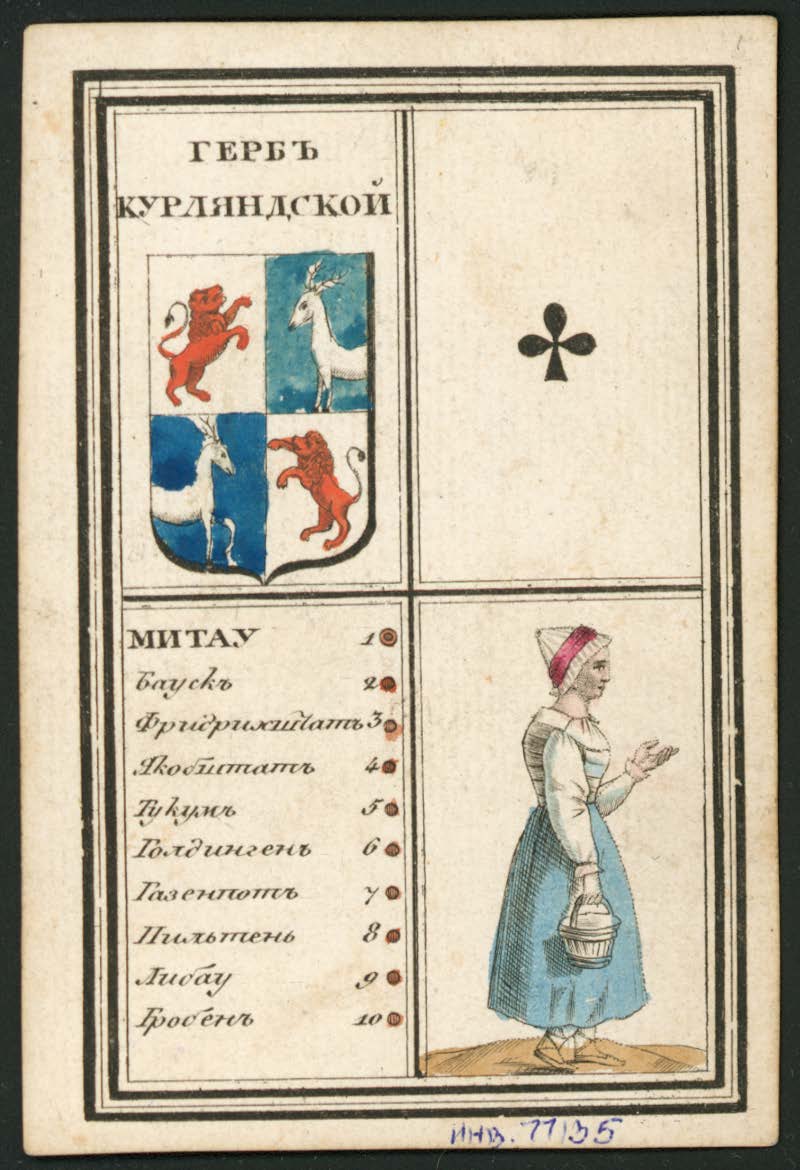 ГЕРБЪ
КУРЛЯНДСКОЙ
МИТАУ 1
Баускъ 2
Фридрихштатъ 3
Якобштатъ 4
Тукумъ 5
Голдингенъ 6
Газенпотъ 7
Пильтенъ 8
Либау 9
Гробенъ 10
инв. 77135